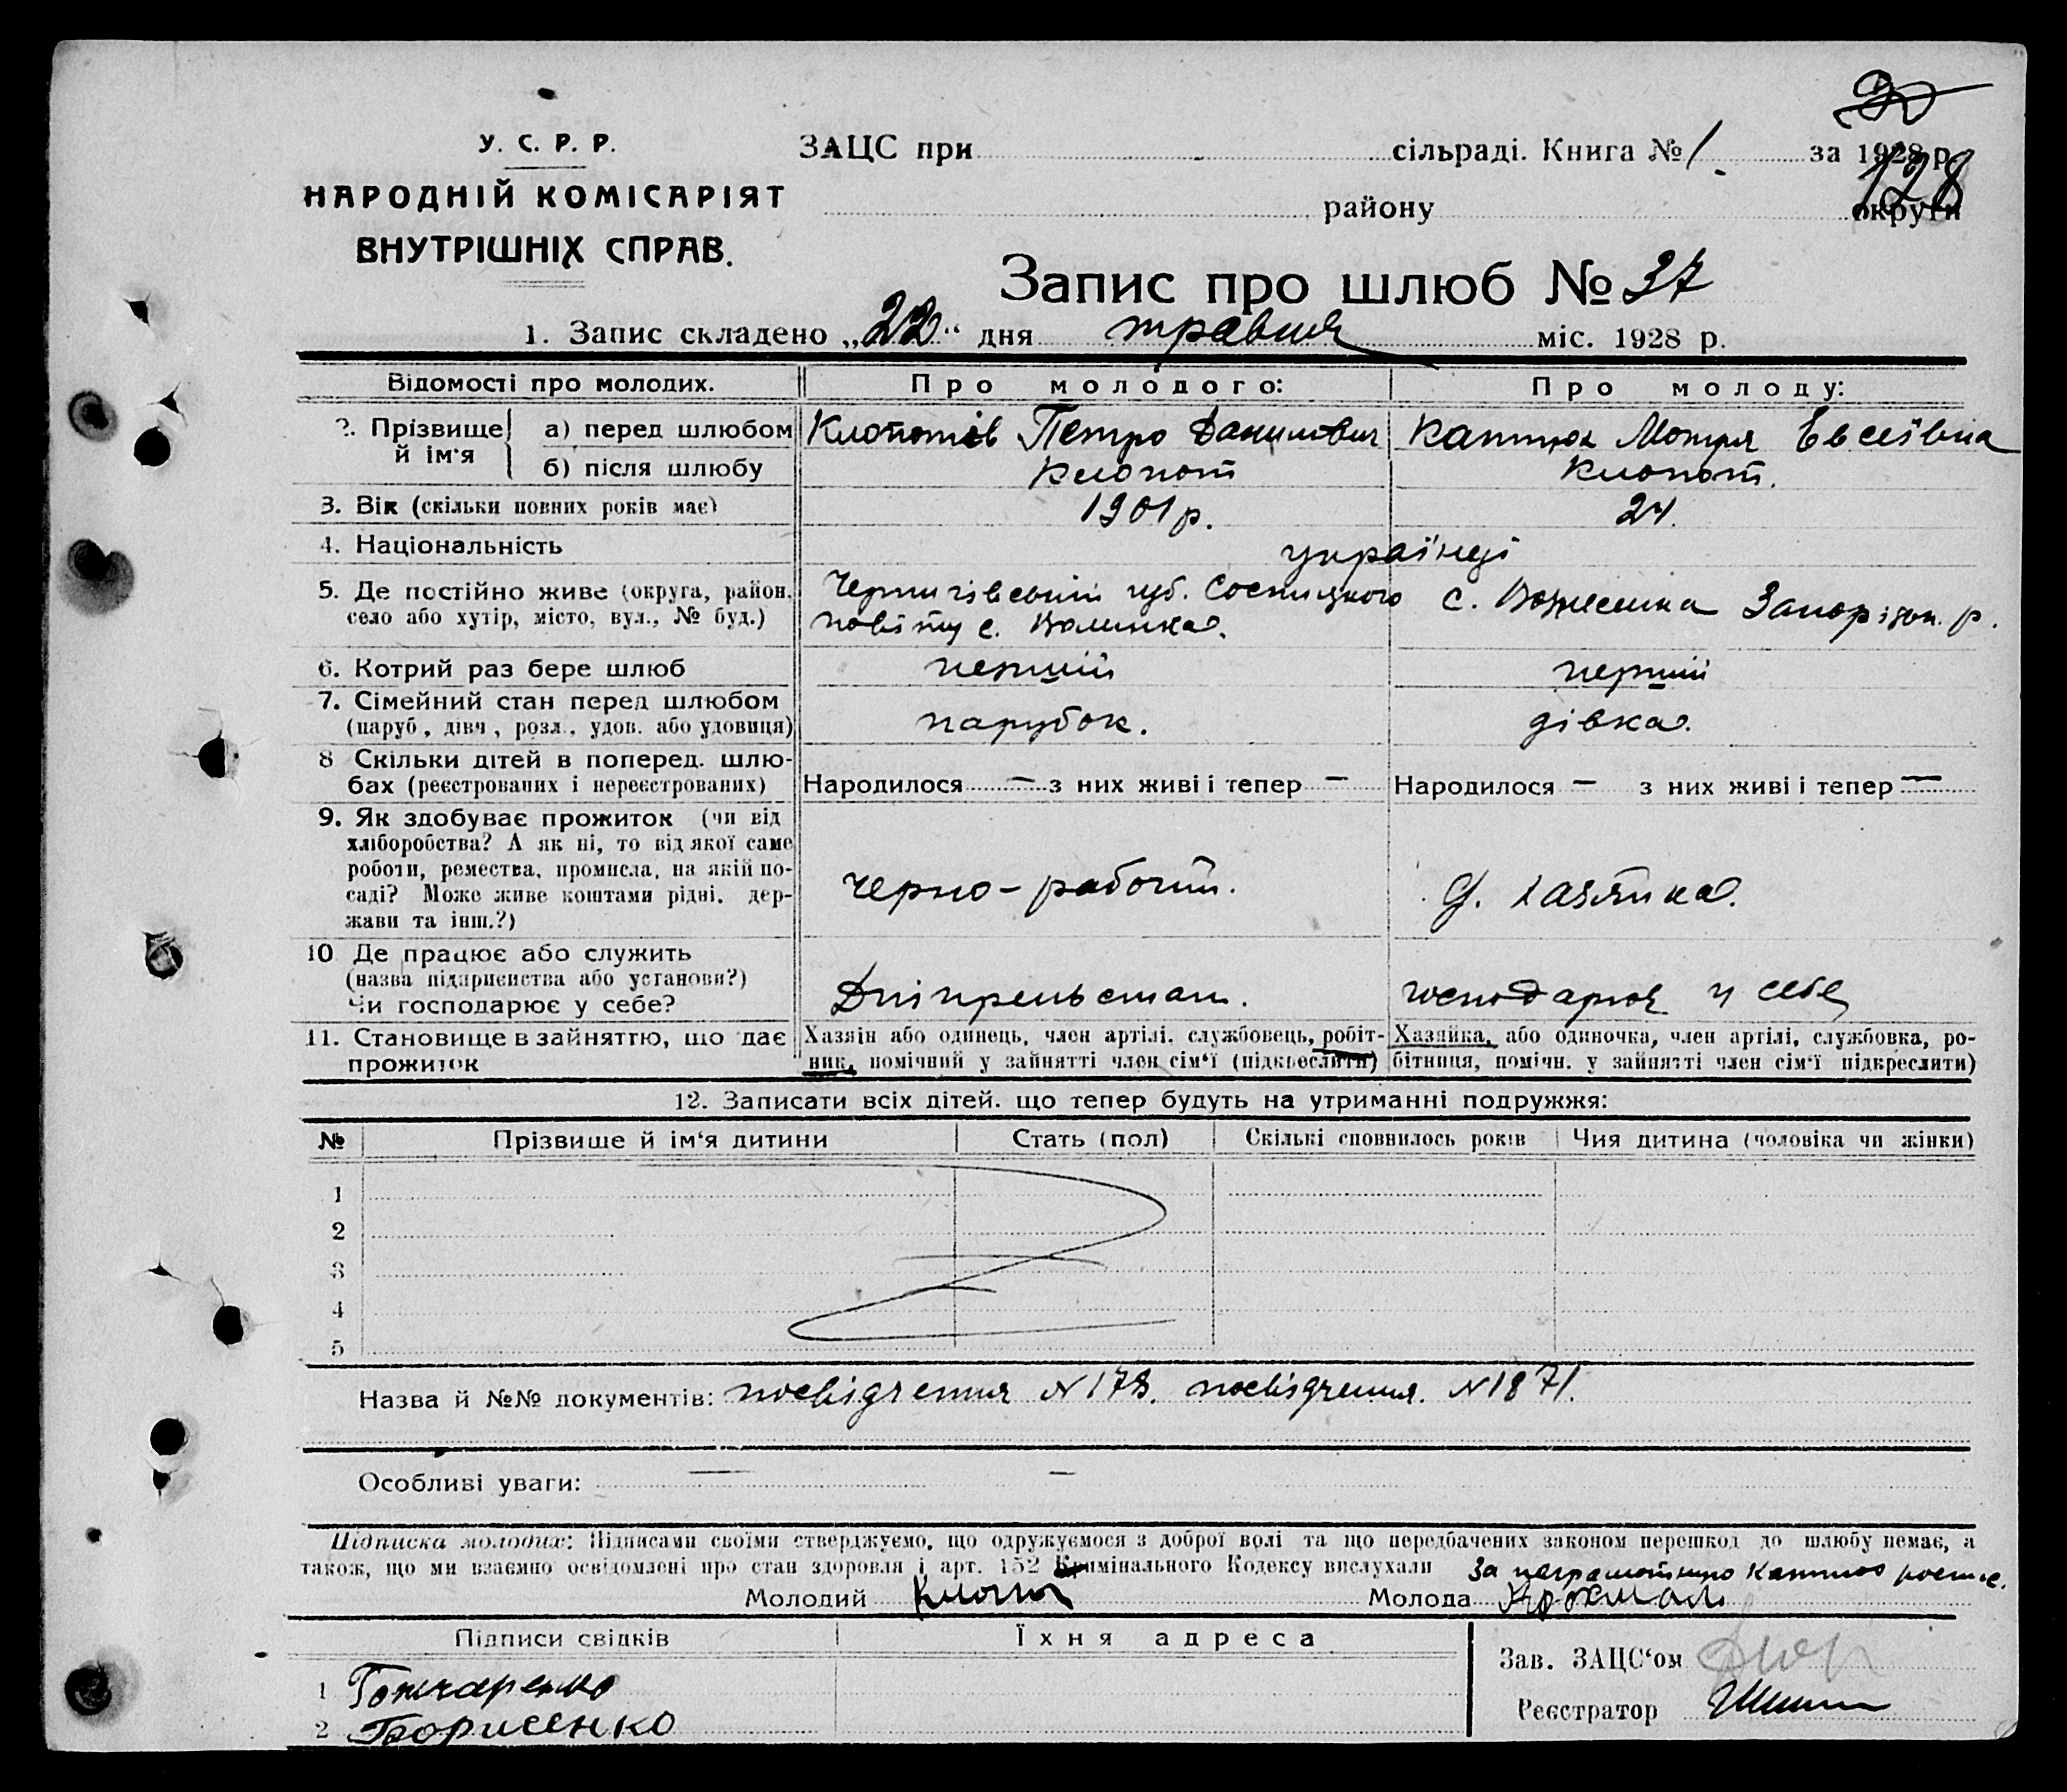 128
У. С. Р. Р.
НАРОДНІЙ КОМІСАРІЯТ
ВНУТРІШНІХ СПРАВ.
ЗАЦС при сільраді. Книга № 1. за 1928 р.
району округи
Запис про шлюб № 37
1. Запис складено „22“ дня травня міс. 1928 р.
Відомості про молодих. Про молодого: Про молоду:
2. Прізвище й ім'я а) перед шлюбом Петро Данилович Мотря Евсеївна
б) після шлюбу Клопот Клопот.
3. Вік (скільки повних років має) 1901 р. 24.
4. Національність українці
5. Де постійно живе (округа, район, Чернигівський губ. Сосницкого с. Вознесенка
село або хутір, місто, вул., № буд.) повіту с. Волинка.
6. Котрий раз бере шлюб перший перший
7. Сімейний стан перед шлюбом
(паруб., дівч., розл., удов. або удовиця) парубок. дівка.
8 Скільки дітей в поперед. шлю-
бах (реєстрованих і нереєстрованих) Народилося — з них живі і тепер — Народилося — з них живі і тепер —
9. Як здобуває прожиток (чи від
хліборобства? А як ні, то від якої саме
роботи, ремества, промисла, на якій по-
саді? Може живе коштами рідні, дер-
жави та інш.?)
черно-рабочий. Д. хазяйка.
10 Де працює або служить
(назва підприємства або установи?)
Чи господарює у себе? Дніпрельстан. господарює у себе
11. Становище в зайняттю, що дає
прожиток
Хазяін або одинець, член артілі, службовець, робіт-
ник, помічний у зайнятті член сім'ї (підкреслити)
Хазяйка, або одиночка, член артілі, службовка, ро-
бітниця, помічн. у зайнятті член сім'ї підкреслити)
12. Записати всіх дітей, що тепер будуть на утриманні подружжя:
№ Прізвище й ім'я дитини Стать (пол) Скількі сповнилось років Чия дитина (чоловіка чи жінки)
1
2
3
4
5
Назва й №№ документів: посвідчення N 178. посвідчення. N 1871.
Особливі уваги: — —
Підписка молодих: Підписами своїми стверджуємо, що одружуємося з доброї волі та що передбачених законом перешкод до шлюбу немає, а
також, що ми взаємно освідомлені про стан здоровля і арт. 152 Кримінального Кодексу вислухали За неграмотную
Молодий Клопот Молода
Підписи свідків Їхня адреса
Зав. ЗАЦС'ом
1 Гончаренко
Реєстратор
2 Борисенко